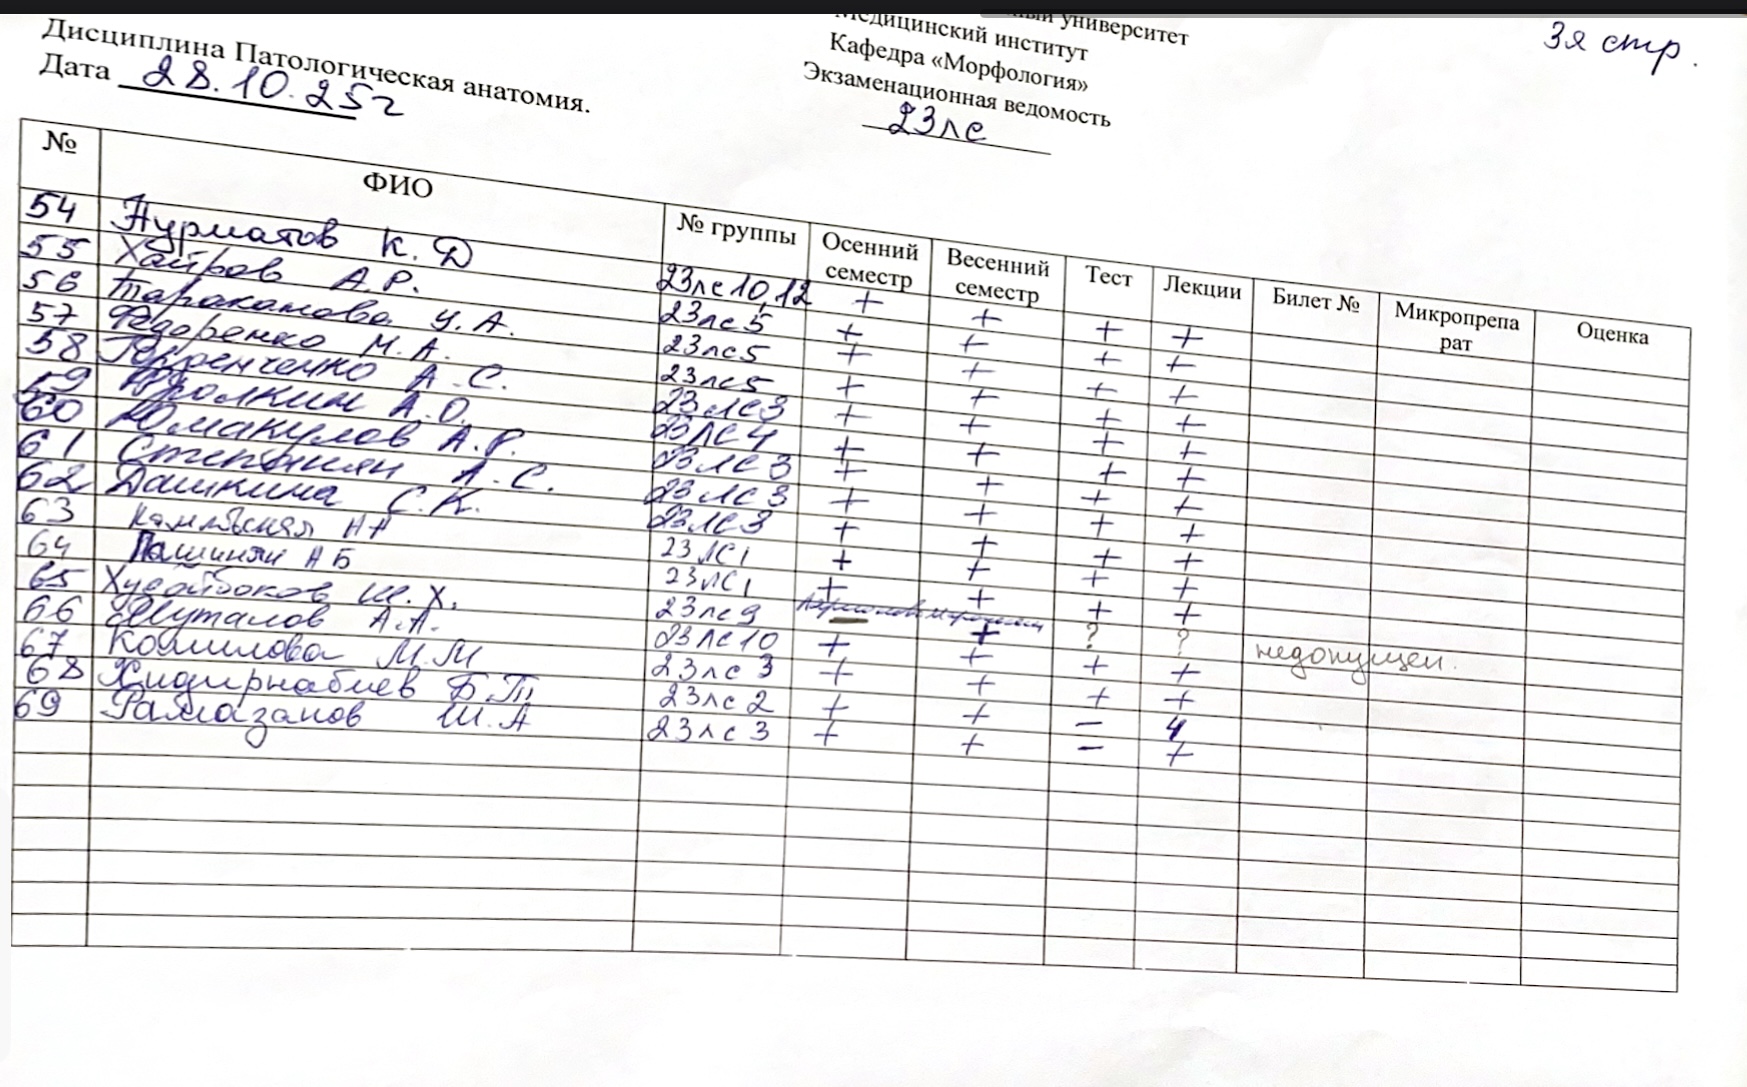 университет
Медицинский институт
Кафедра «Морфология»
Экзаменационная ведомость
23лс
3я стр.
Дисциплина Патологическая анатомия.
Дата 28.10.25г
№ ФИО № группы Осенний семестр Весенний семестр Тест Лекции Билет № Микропрепа рат Оценка
54 Нурматов К. Д 23лс10,12 + + + +
55 Хаиров А.Р. 23лс5 + + + +
56 Тараканова У.А. 23лс5 + + + +
57 Федоренко М.А. 23лс5 + + + +
58 А.С. 23лс3 + + + +
59 А.О. 23лс4 + + + +
60 Юманкулов А.Р. 23лс3 + + + +
61 Степанян А.С. 23лс3 + + + +
62 Дашкина С.К. 23лс3 + + + +
63 НА 23лс1 + + + +
64 Пашинян АБ 23лс1 + + + +
65 Ш.Х. 23лс9 - + ? ? недопущен.
66 Муталов А.А. 23лс10 + + + +
67 Комилова М.М 23лс3 + + + +
68 Хидирнабиев Б.Т. 23лс2 + + - 4
69 Рамазанов Ш.А 23лс3 + + - +